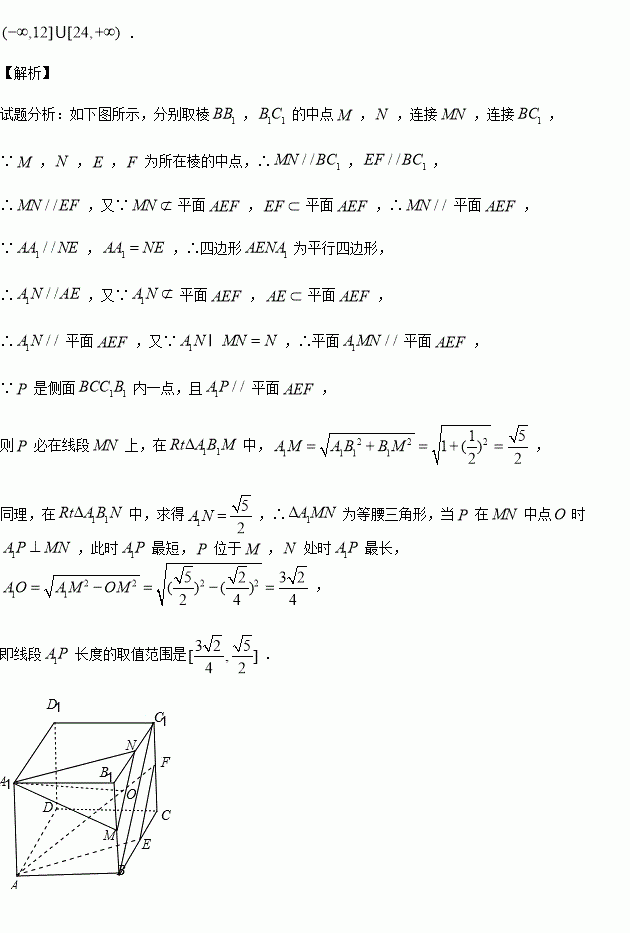 (−∞,12]∪[24,+∞) .
【解析】
试题分析：如下图所示，分别取棱 BB₁ ，B₁C₁ 的中点 M ，N ，连接 MN ，连接 BC₁ ，
∵ M ，N ，E ，F 为所在棱的中点，∴ MN//BC₁ ，EF//BC₁ ，
∴ MN//EF ，又∵ MN⊄ 平面 AEF ，EF⊂ 平面 AEF ，∴ MN// 平面 AEF ，
∵ AA₁//NE ，AA₁=NE ，∴四边形 AENA₁ 为平行四边形，
∴ A₁N//AE ，又∵ A₁N⊄ 平面 AEF ，AE⊂ 平面 AEF ，
∴ A₁N// 平面 AEF ，又∵ A₁N I MN=N ，∴平面 A₁MN// 平面 AEF ，
∵ P 是侧面 BCC₁B₁ 内一点，且 A₁P// 平面 AEF ，
则 P 必在线段 MN 上，在 RtΔA₁B₁M 中，A₁M=√(A₁B₁²+B₁M²)=√(1+(1/2)²)=√5/2 ，
同理，在 RtΔA₁B₁N 中，求得 A₁N=√5/2 ，∴ ΔA₁MN 为等腰三角形，当 P 在 MN 中点 O 时
A₁P⊥MN ，此时 A₁P 最短，P 位于 M ，N 处时 A₁P 最长，
A₁O=√(A₁M²−OM²)=√((√5/2)²−(√2/4)²)=3√2/4 ，
即线段 A₁P 长度的取值范围是[3√2/4,√5/2] .
D₁
C₁
N
A₁
B₁
F
O
D
C
M
E
B
A